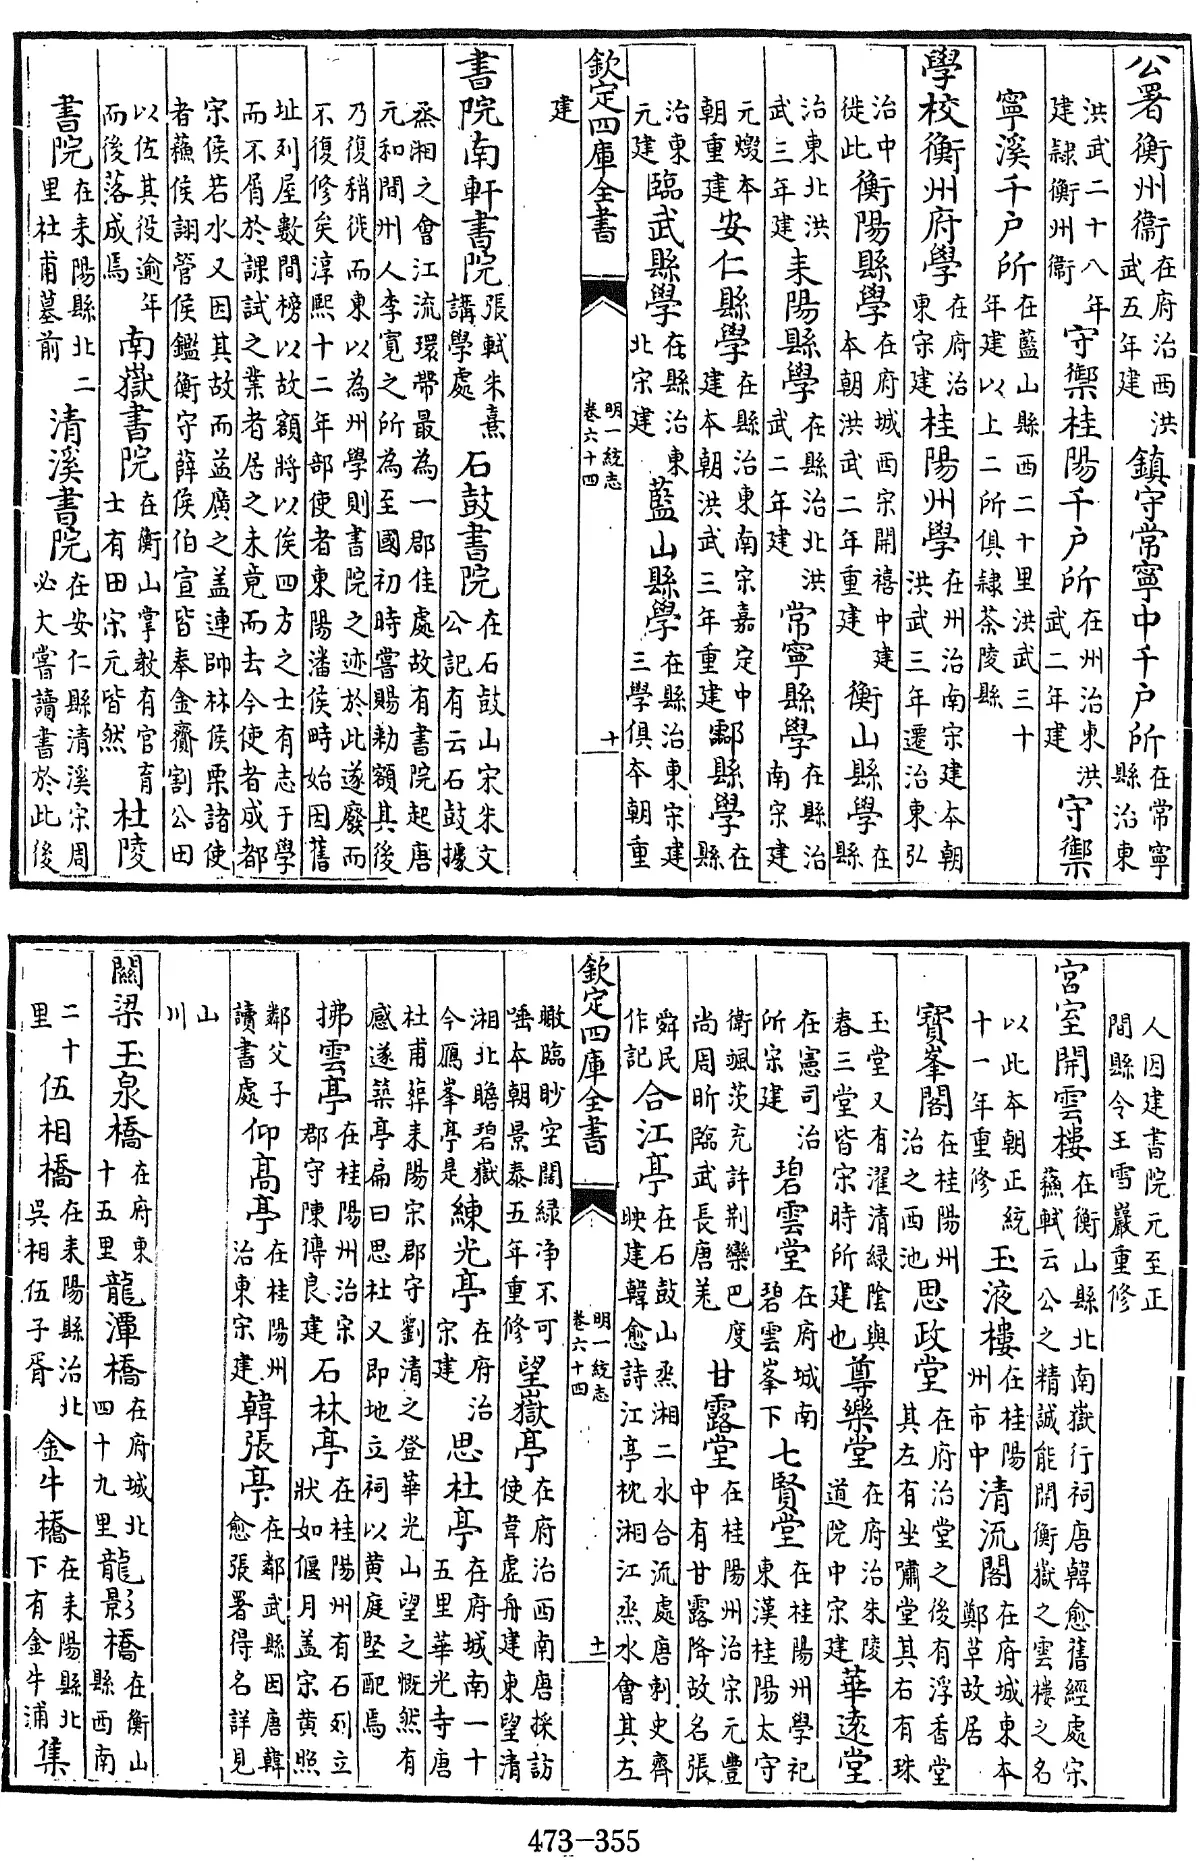 公署衡州衞在府治西洪武五年建鎮守常寧中千户所在常寧縣治東
洪武二十八年建隸衡州衞守禦桂陽千户所在州治東洪武二年建守禦
寧溪千户所在藍山縣西二十里洪武三十年建以上二所俱隸茶陵縣
學校衡州府學在府治東宋建桂陽州學在州治南宋建本朝洪武三年遷治東弘
治中徙此衡陽縣學在府城西宋開禧中建本朝洪武二年重建衡山縣學在縣
治東北洪武三年建耒陽縣學在縣治北洪武二年建常寧縣學在縣治南宋建
元燬本朝重建安仁縣學在縣治東南宋嘉定中建本朝洪武三年重建酃縣學在縣
治東元建臨武縣學在縣治東北宋建藍山縣學在縣治東宋建三學俱本朝重
欽定四庫全書 明一統志卷六十四 十
建
書院南軒書院張軾朱熹講學處石鼓書院在石鼓山宋朱文公記有云石鼓據
烝湘之會江流環帶最為一郡佳處故有書院起唐元和間州人李寬之所為至國初時嘗賜勅額其後
乃復稍徙而東以為州學則書院之迹於此遂廢而不復修矣淳熙十二年部使者東陽潘侯時始因舊
址列屋數間榜以故額將以俟四方之士有志于學而不屑於課試之業者居之未竟而去今使者成都
宋侯若水又因其故而益廣之盖連帥林侯栗諸使者蘓侯詡管侯鑑衡守薛侯伯宣皆奉金齎割公田
以佐其役逾年而後落成焉南嶽書院在衡山掌教有官育士有田宋元皆然杜陵
書院在耒陽縣北二里杜甫墓前清溪書院在安仁縣清溪宋周必大嘗讀書於此後
人因建書院元至正間縣令王雪巖重修
宮室開雲樓在衡山縣北南嶽行祠唐韓愈舊經處宋蘓軾云公之精誠能開衡嶽之雲樓之名
以此本朝正統十一年重修玉液樓在桂陽州市中清流閣在府城東本鄭草故居
寶峯閣在桂陽州治之西池思政堂在府治堂之後有浮香堂其左有坐嘯堂其右有珠
玉堂又有濯清緑陰與春三堂皆宋時所建也尊樂堂在府治朱陵道院中宋建華遠堂
在憲司治所宋建碧雲堂在府城南碧雲峯下七賢堂在桂陽州學祀東漢桂陽太守
衛颯茨充許荆欒巴度尚周昕臨武長唐羌甘露堂在桂陽州治宋元豐中有甘露降故名張
舜民作記合江亭在石鼓山烝湘二水合流處唐刺史齊映建韓愈詩江亭枕湘江烝水會其左
欽定四庫全書 明一統志卷六十四 十一
瞰臨眇空闊緑净不可唾本朝景泰五年重修望嶽亭在府治西南唐採訪使韋虛舟建東望清
湘北瞻碧嶽今鴈峯亭是練光亭在府治宋建思杜亭在府城南一十五里華光寺唐
杜甫葬耒陽宋郡守劉清之登華光山望之慨然有感遂築亭扁曰思杜又即地立祠以黄庭堅配焉
拂雲亭在桂陽州治宋郡守陳傳良建石林亭在桂陽州有石列立狀如偃月盖宋黄照
鄰父子讀書處仰高亭在桂陽州治東宋建韓張亭在鄰武縣因唐韓愈張署得名詳見
山川
關梁玉泉橋在府東十五里龍潭橋在府城北四十九里龍影橋在衡山縣西南
二十里伍相橋在耒陽縣治北吳相伍子胥金牛橋在耒陽縣北下有金牛浦集
473-355